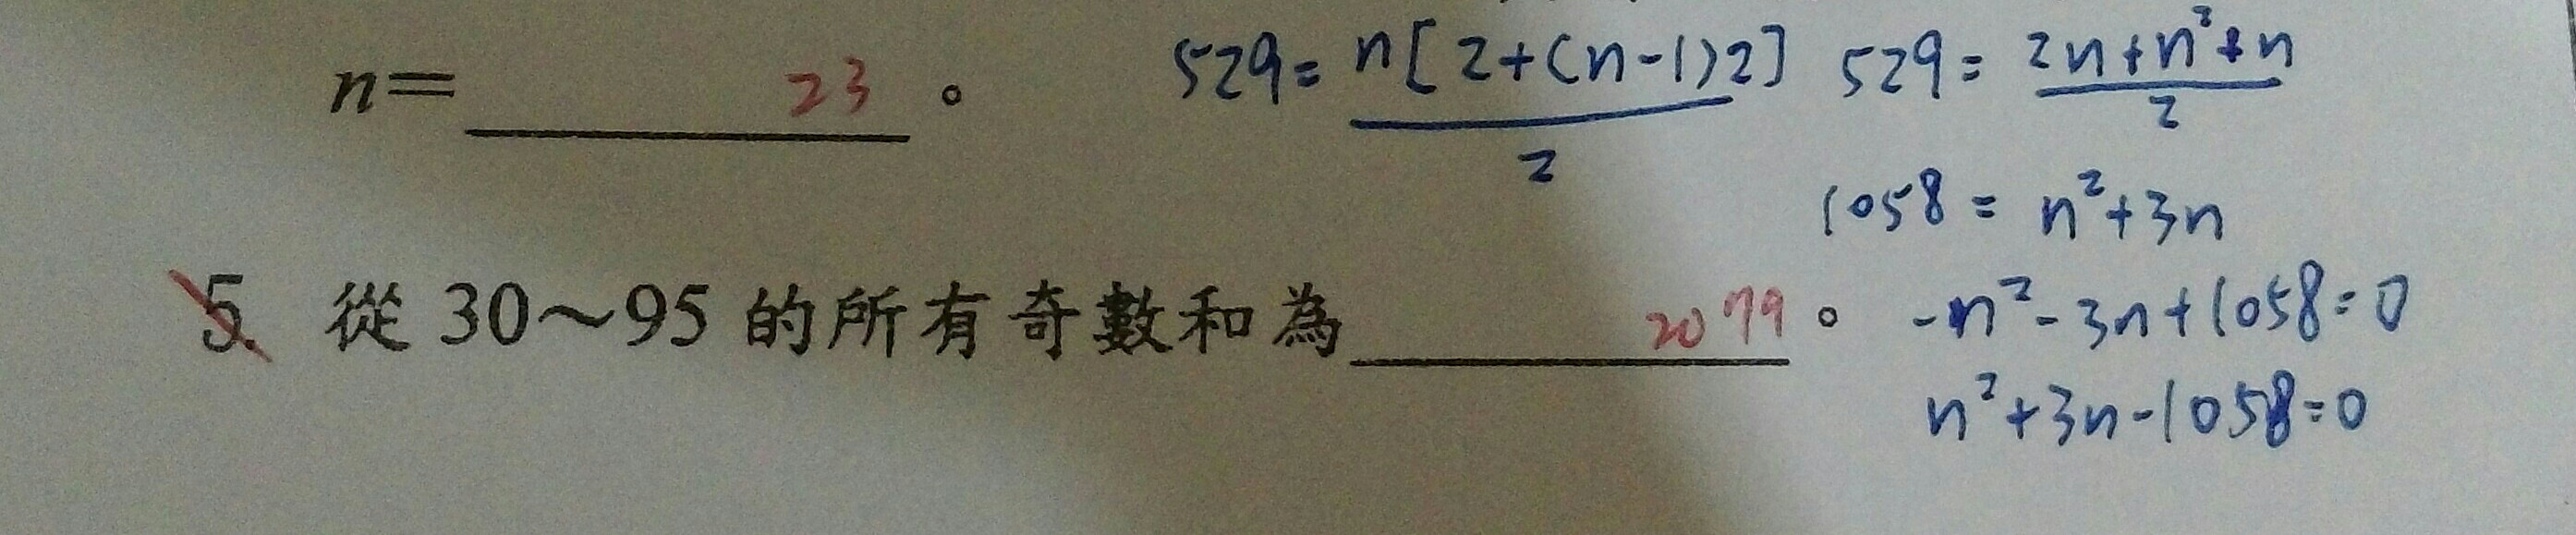 n= 23 。
529= n[2+(n-1)2] / 2
529= 2n+n²+n / 2
1058= n²+3n
-n²-3n+1058=0
n²+3n-1058=0
5. 從 30～95 的所有奇數和為 2079 。